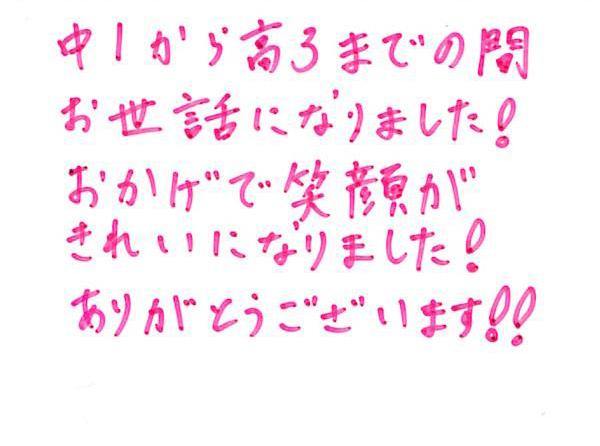 中1から高3までの間
お世話になりました!
おかげで笑顔が
きれいになりました!
ありがとうございます!!